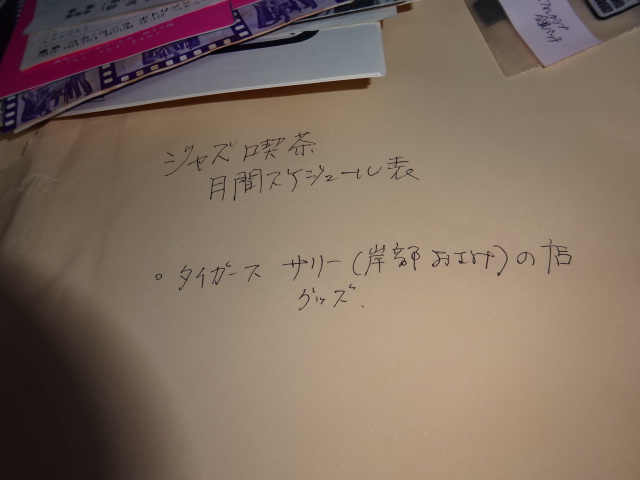 ジャズ喫茶
月間スケジュール表
○ タイガース サリー(岸部おさみ)の店
グッズ.